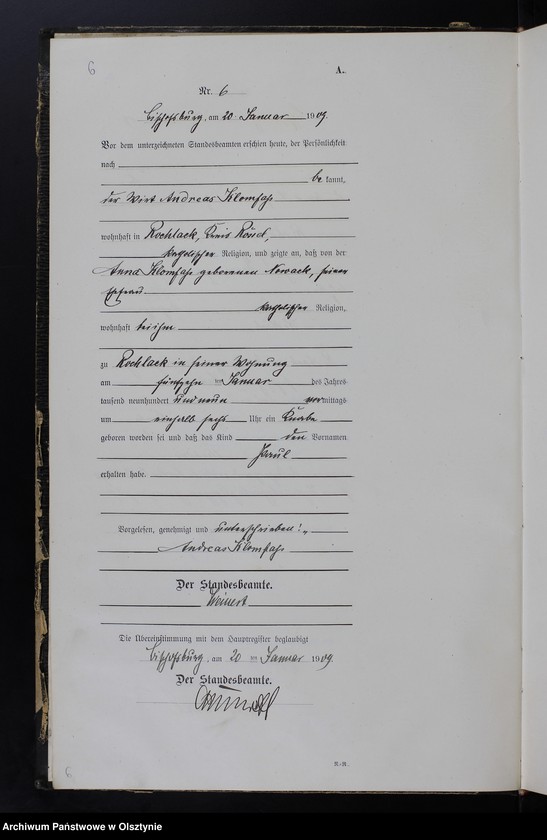 6
A.
Nr. 6
Bischofsburg, am 20 Januar 1909.
Vor dem unterzeichneten Standesbeamten erschien heute, der Persönlichkeit
nach
be kannt,
der Wirt Andreas Klomfaß
wohnhaft in Rochlack, Kreis Rössel,
katholischer Religion, und zeigte an, daß von der
Anna Klomfaß geborenen Nowack, seiner
Ehefrau
katholischer Religion,
wohnhaft bei ihm
zu Rochlack in seiner Wohnung
am fünfzehn ten Januar des Jahres
tausend neunhundert und neun vormittags
um einhalb sechs Uhr ein Knabe
geboren worden sei und daß das Kind den Vornamen
Paul
erhalten habe.
Vorgelesen, genehmigt und unterschrieben!
Andreas Klomfaß
Der Standesbeamte.
Weinert
Die Übereinstimmung mit dem Hauptregister beglaubigt
Bischofsburg, am 20 ten Januar 1909.
Der Standesbeamte.
R.-R.
6
Archiwum Państwowe w Olsztynie